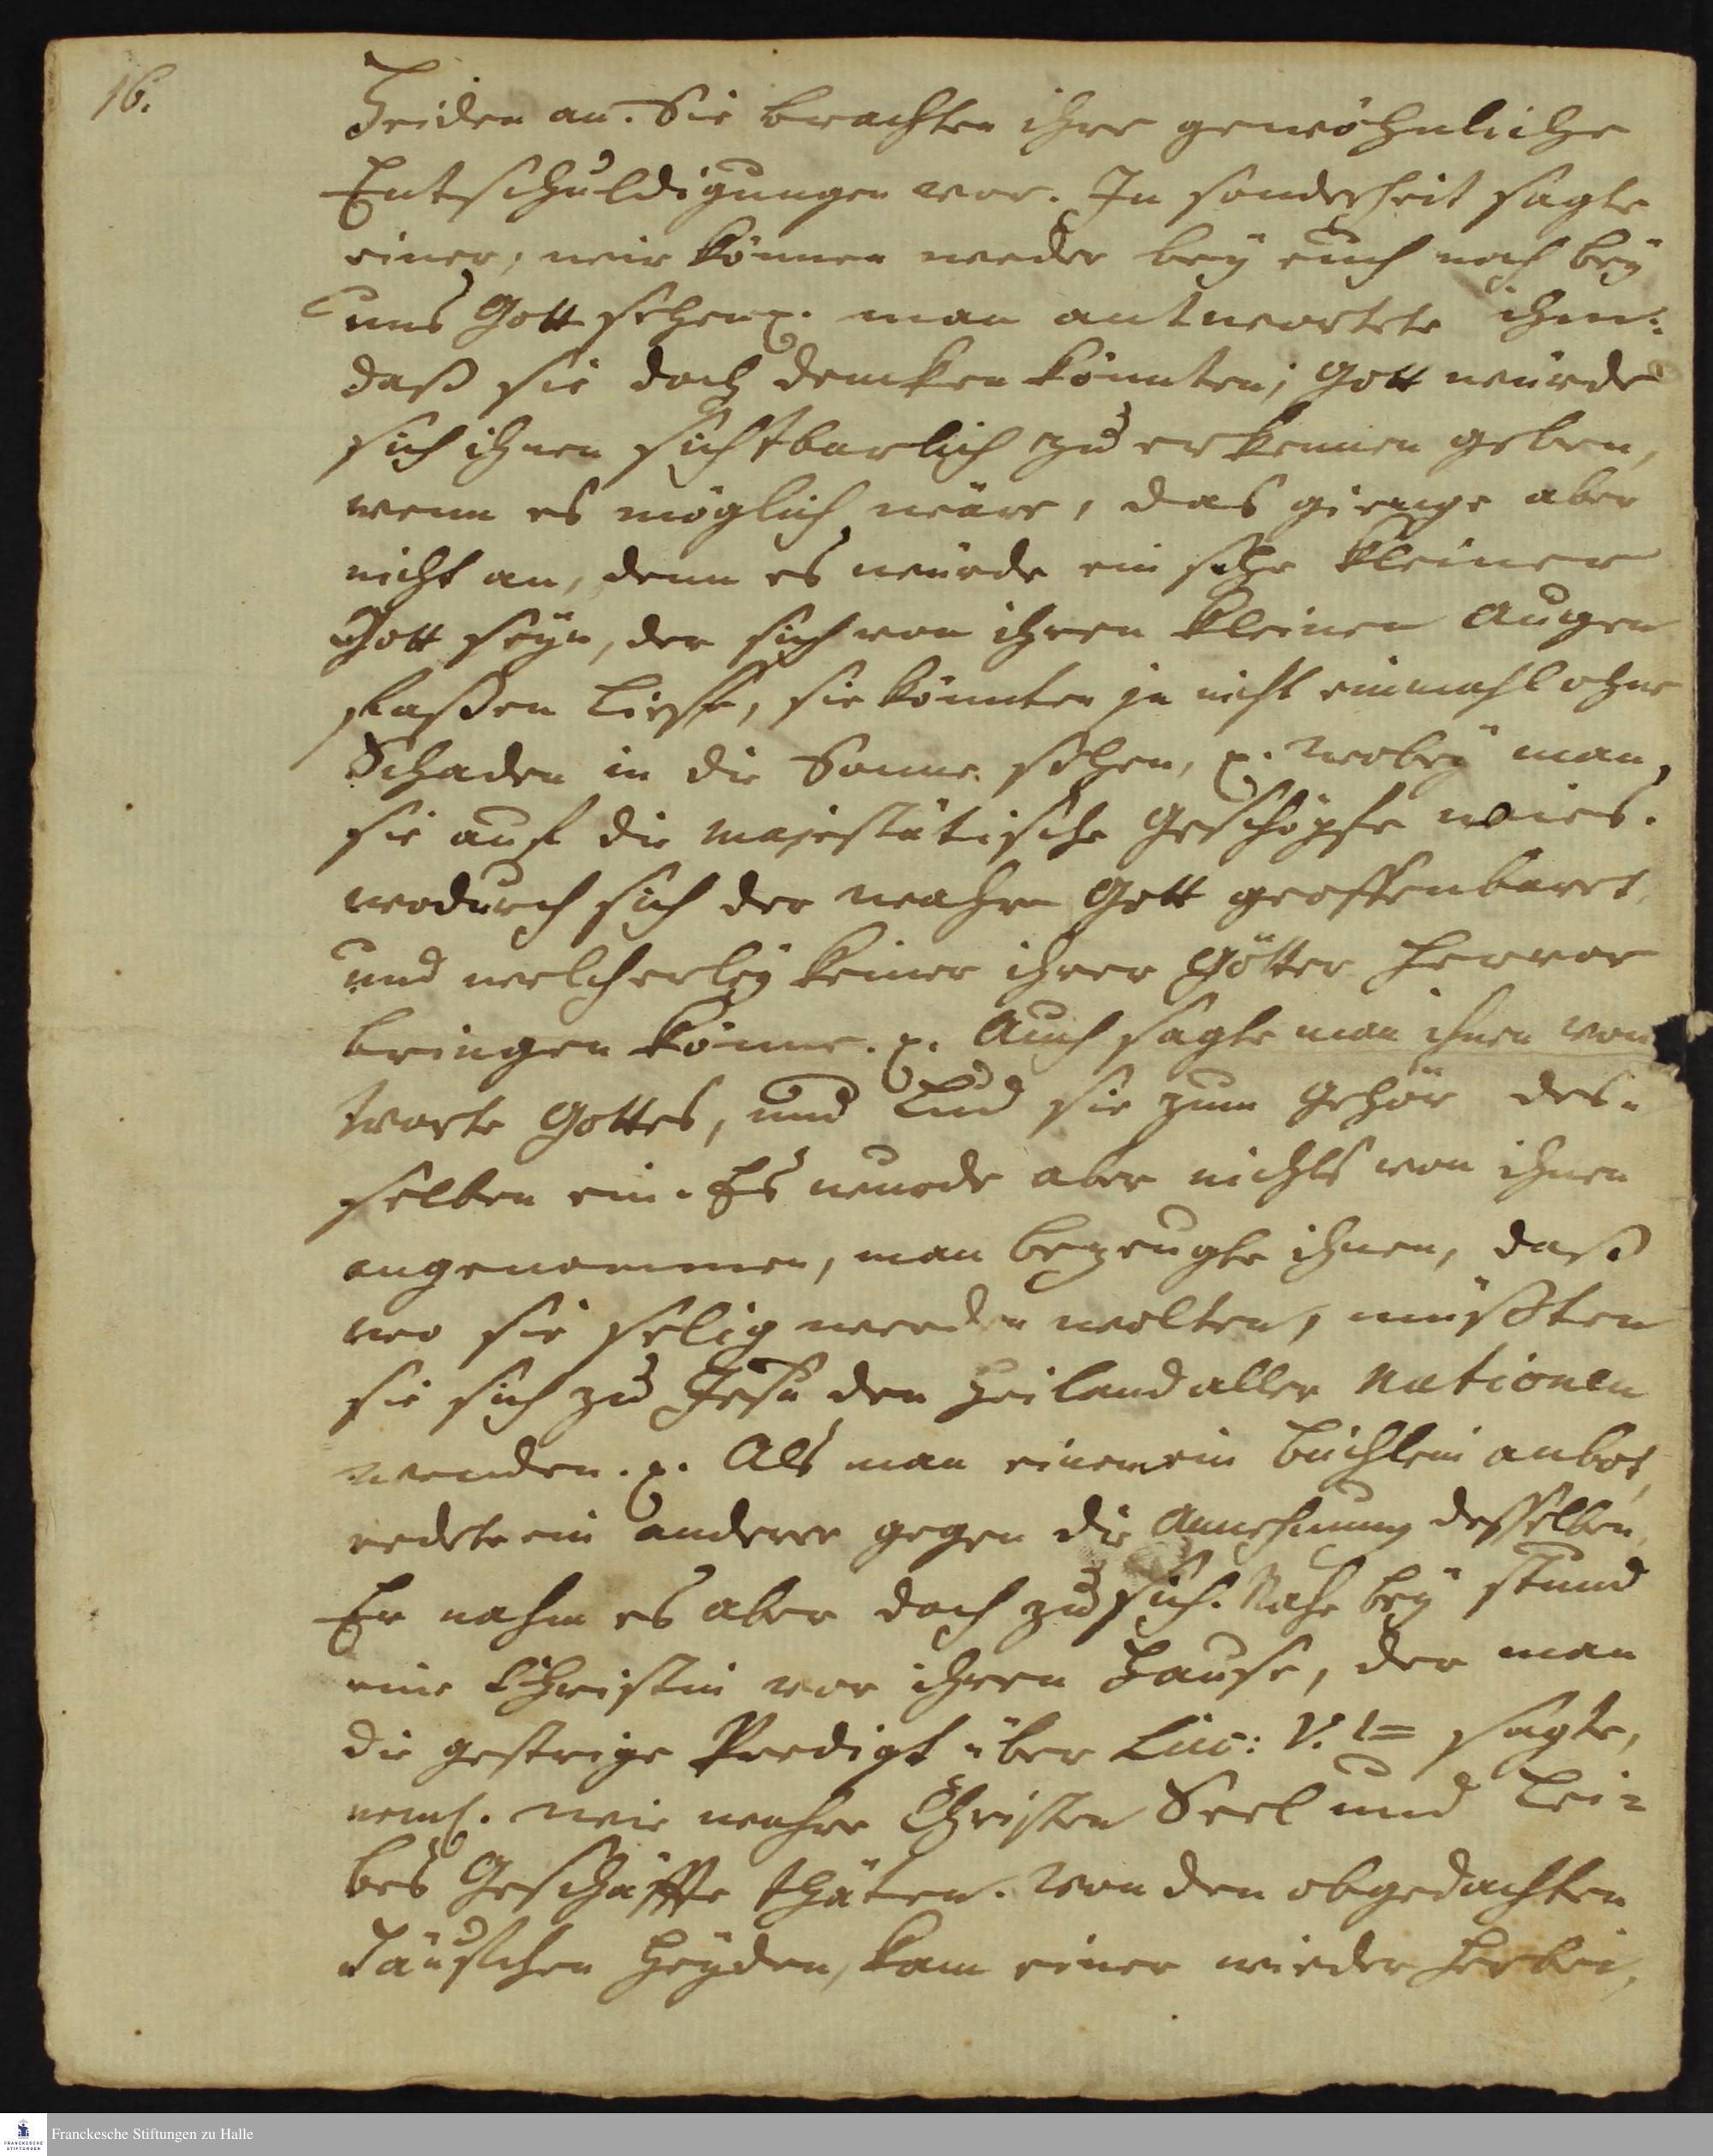 16.
Heiden an. Sie brachten ihre gewöhnliche
Entschuldigungen vor. In sonderheit sagte
einer, wir können weder bey euch noch bey
uns Gott sehen p. man antwortete ihm:
daß sie doch dencken könnten, Gott würde
sich ihnen sichtbarlich zu erkennen geben,
wenn es möglich wäre, das gienge aber
nicht an, denn es würde ein sehr kleiner
Gott seyn, der sich von ihren kleinen Augen
faßen ließe, sie könnten ja nicht einmahl ohne
Schaden in die Sonne sehen, p. wobey man,
sie auf die majestätische Geschöpfe wies.
wodurch sich der wahre Gott geoffenbaret
und welcherley keiner ihrer Götter hervor
bringen könne. p. Auch sagte man ihnen vom
Worte Gottes, und lud sie zum Gehör des-
selben ein. Es wurde aber nichts von ihnen
angenommen, man bezeugte ihnen, daß
wo sie selig werden wolten, müßten
sie sich zu Jesu den Heiland aller Nationen
wenden. p. Als man einem ein Büchlein anbot,
redete ein anderer gegen die Annehmung desselben,
Er nahm es aber doch zu sich. Nahe bey stund
eine Christin vor ihren Hause, der man
die gestrige Predigt über Luc: V. 1= sagte,
neml. wie wahre Christen Seel und Lei-
bes Geschäffte thäten. Von den obgedachten
Heyden, kam einer wieder herbei,
Franckesche Stiftungen zu Halle